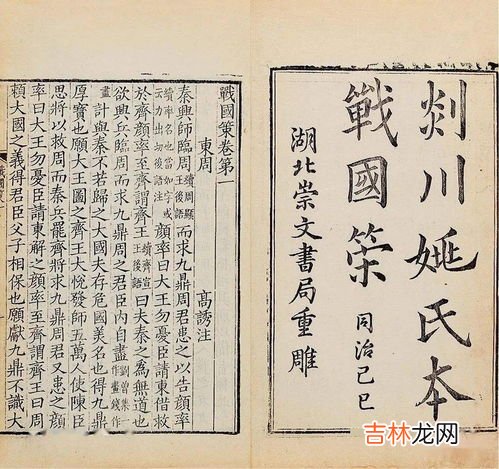 剡川姚氏本
戰國筞 同治己巳
湖北崇文書局重雕
戰國策卷第一
東周 高誘注
秦興師臨周續周顯王後語而求九鼎周君患之以告顏率
續率名也當如字或云力出切後語注顏率曰大王勿憂臣請東借救
於齊顏率至齊謂齊王續齊宣王後語曰夫秦之為無道也
欲興兵臨周而求九鼎周之君臣內自盡
計與秦不若歸之大國夫存危國美名也得九鼎
厚寶也願大王圖之齊王大悅發師五萬人使陳臣
思將以救周而秦兵罷齊將求九鼎周君又患之顏
率曰大王勿憂臣請東解之顏率至齊謂齊王曰周
賴大國之義得君臣父子相保也願獻九鼎不識大
吉林龙网